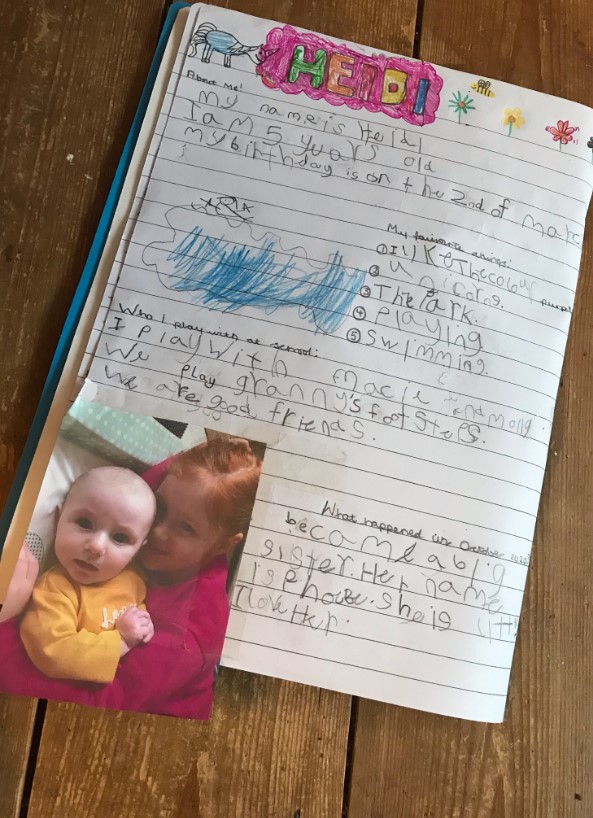 HEIDI
About Me!
My name is Heidi
I am 5 years old
my birthday is on the 2nd of marc
My favourite things:
① I like The colour purple
② Unicorns.
③ The Park.
④ Playing
⑤ Swimming
Who I play with at school:
I play with macie and
We play granny's footsteps.
We are good friends.
What happened in October
became a big
sister. Her name
is phoebe. she is
I love Her.